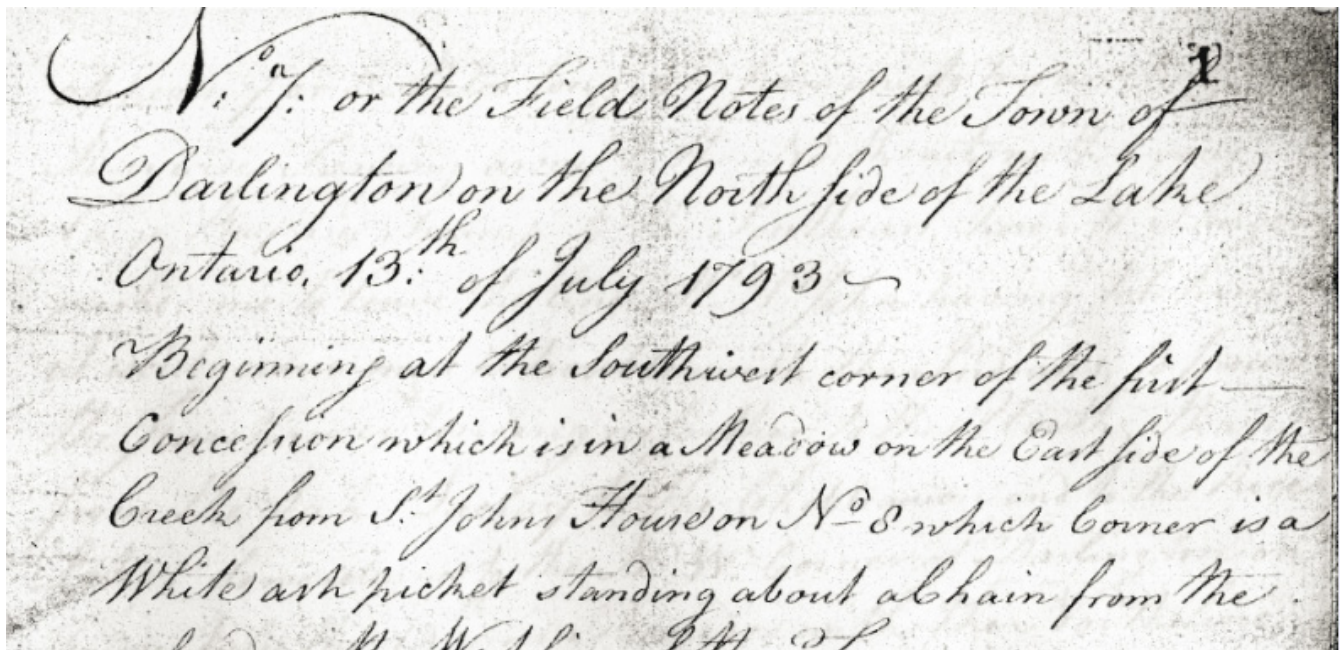 1
N.º 7. or the Field Notes of the Town of
Darlington on the North side of the Lake
Ontario, 13.th of July 1793 —
Beginning at the Southwest corner of the first —
Concession which is in a Meadow on the East side of the
Creek from St. Johns House on Nº 8 which Corner is a
White ash picket standing about a Chain from the